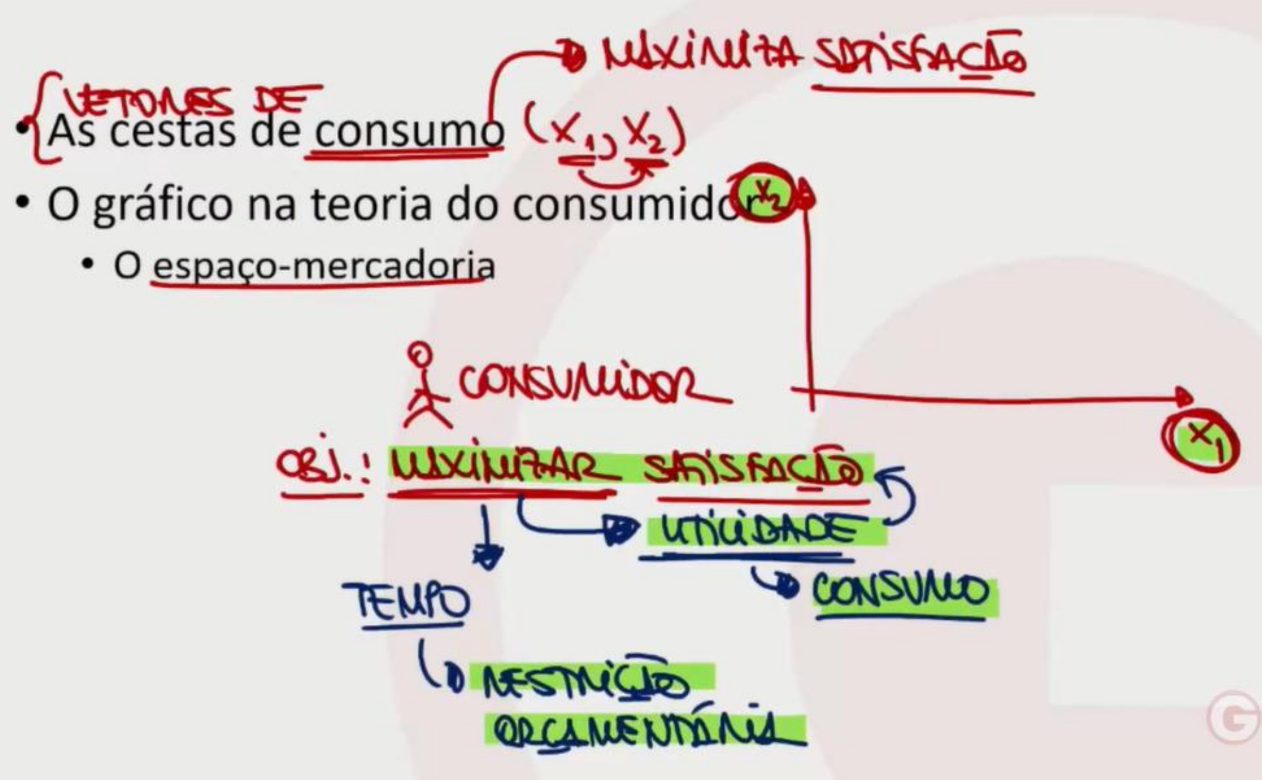 MAXIMIZA SATISFAÇÃO
VETORES DE
• As cestas de consumo (X1, X2)
• O gráfico na teoria do consumidor
X2
• O espaço-mercadoria
CONSUMIDOR
X1
OBJ.: MAXIMIZAR SATISFAÇÃO
UTILIDADE
TEMPO
CONSUMO
RESTRIÇÃO
ORÇAMENTÁRIA
G